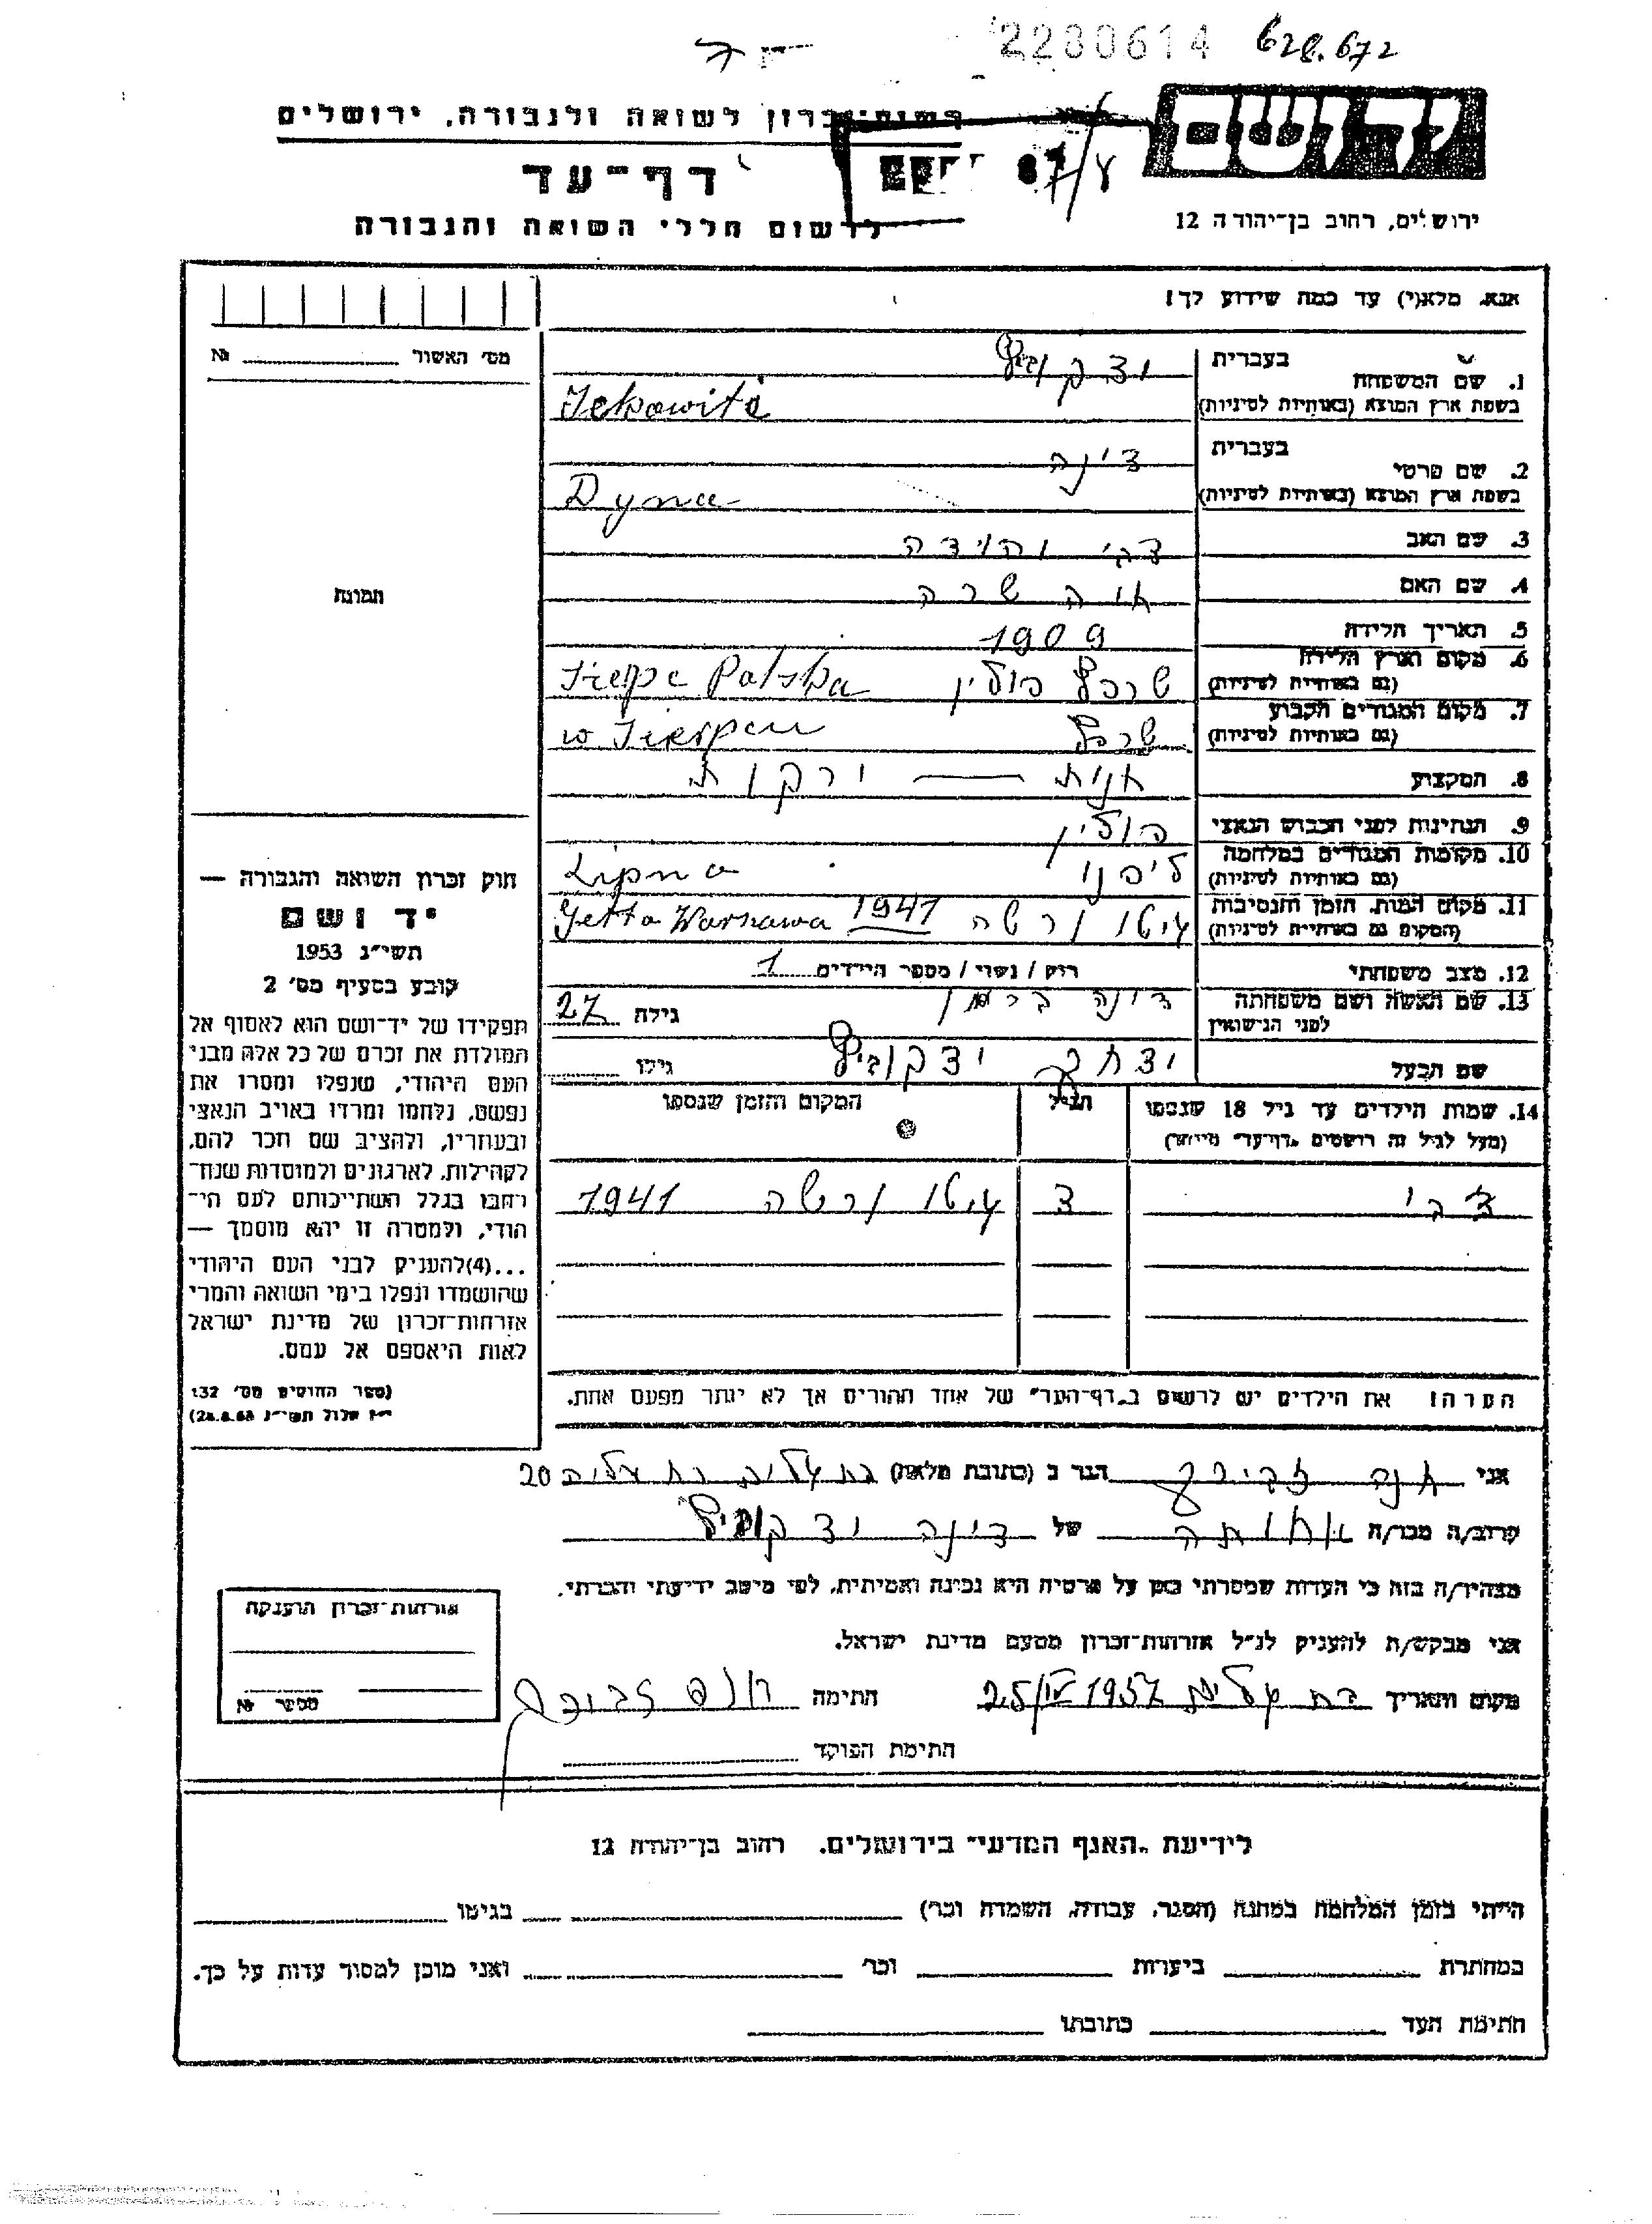 2280614 628.672
רשות-זכרון לשואה ולגבורה, ירושלים
יד ושם
דף-עד
לרשום חללי השואה והגבורה
ירושלים, רחוב בן-יהודה 12
אנא, מלא(י) עד כמה שידוע לך!
מס' האשור № 
בעברית
1. שם המשפחה
בשפת ארץ המוצא (באותיות לטיניות)
בעברית דינה
2. שם פרטי
בשפת ארץ המוצא (באותיות לטיניות) Dyna
3. שם האב צבי יהודה
4. שם האם שרה
5. תאריך הלידה 1909
6. מקום וארץ הלידה
(גם באותיות לטיניות) שרפץ פולין Polska
7. מקום המגורים הקבוע
(גם באותיות לטיניות) שרפץ w
8. המקצוע חנות — ירקות
9. הנתינות לפני הכבוש הנאצי פולין
10. מקומות המגורים במלחמה
(גם באותיות לטיניות) ליפנו Lipno
11. מקום המות, הזמן והנסיבות
(המקום גם באותיות לטיניות) גיטו ורשה 1941 Getto Warszawa
12. מצב משפחתי רווק / נשוי / מספר הילדים 1
13. שם האשה ושם משפחתה
לפני הנישואין דינה גילה 27
שם הבעל יצחק גילו
14. שמות הילדים עד גיל 18 שנספו
(מעל לגיל זה רושמים "דף-עד" מיוחד)
הגיל
המקום והזמן שנספו
צבי 3 גיטו ורשה 1941
הערה: את הילדים יש לרשום ב"דף-העד" של אחד ההורים אך לא יותר מפעם אחת.
תמונה
חוק זכרון השואה והגבורה —
יד ושם
תשי"ג 1953
קובע בסעיף מס' 2
תפקידו של יד-ושם הוא לאסוף אל
המולדת את זכרם של כל אלה מבני
העם היהודי, שנפלו ומסרו את
נפשם, נלחמו ומרדו באויב הנאצי
ובעוזריו, ולהציב שם וזכר להם,
לקהילות, לארגונים ולמוסדות שנח-
רבו בגלל השתייכותם לעם הי-
הודי, ולמטרה זו יהא מוסמך —
...(4) להעניק לבני העם היהודי
שהושמדו ונפלו בימי השואה והמרי
אזרחות-זכרון של מדינת ישראל
לאות היאספם אל עמם.
(ספר החוקים מס' 132
אלול תשי"ג
אני חנה הגר ב (כתובת מלאה) בת גלים 20
קרוב/ה מכר/ה אחותה של דינה
מצהיר/ה בזה כי העדות שמסרתי כאן על פרטיה היא נכונה ואמיתית, לפי מיטב ידיעתי והכרתי.
אני מבקש/ת להעניק לנ"ל אזרחות-זכרון מטעם מדינת ישראל.
מקום ותאריך בת גלים 1957 חתימה
חתימת הפוקד
אזרחות-זכרון הוענקה
מספר №
לידיעת "האגף המדעי" בירושלים, רחוב בן-יהודה 12
הייתי בזמן המלחמה במחנה (הסגר, עבודה, השמדה וכו') בגיטו
במחתרת ביערות וכו' ואני מוכן למסור עדות על כך.
חתימת העד כתובתו